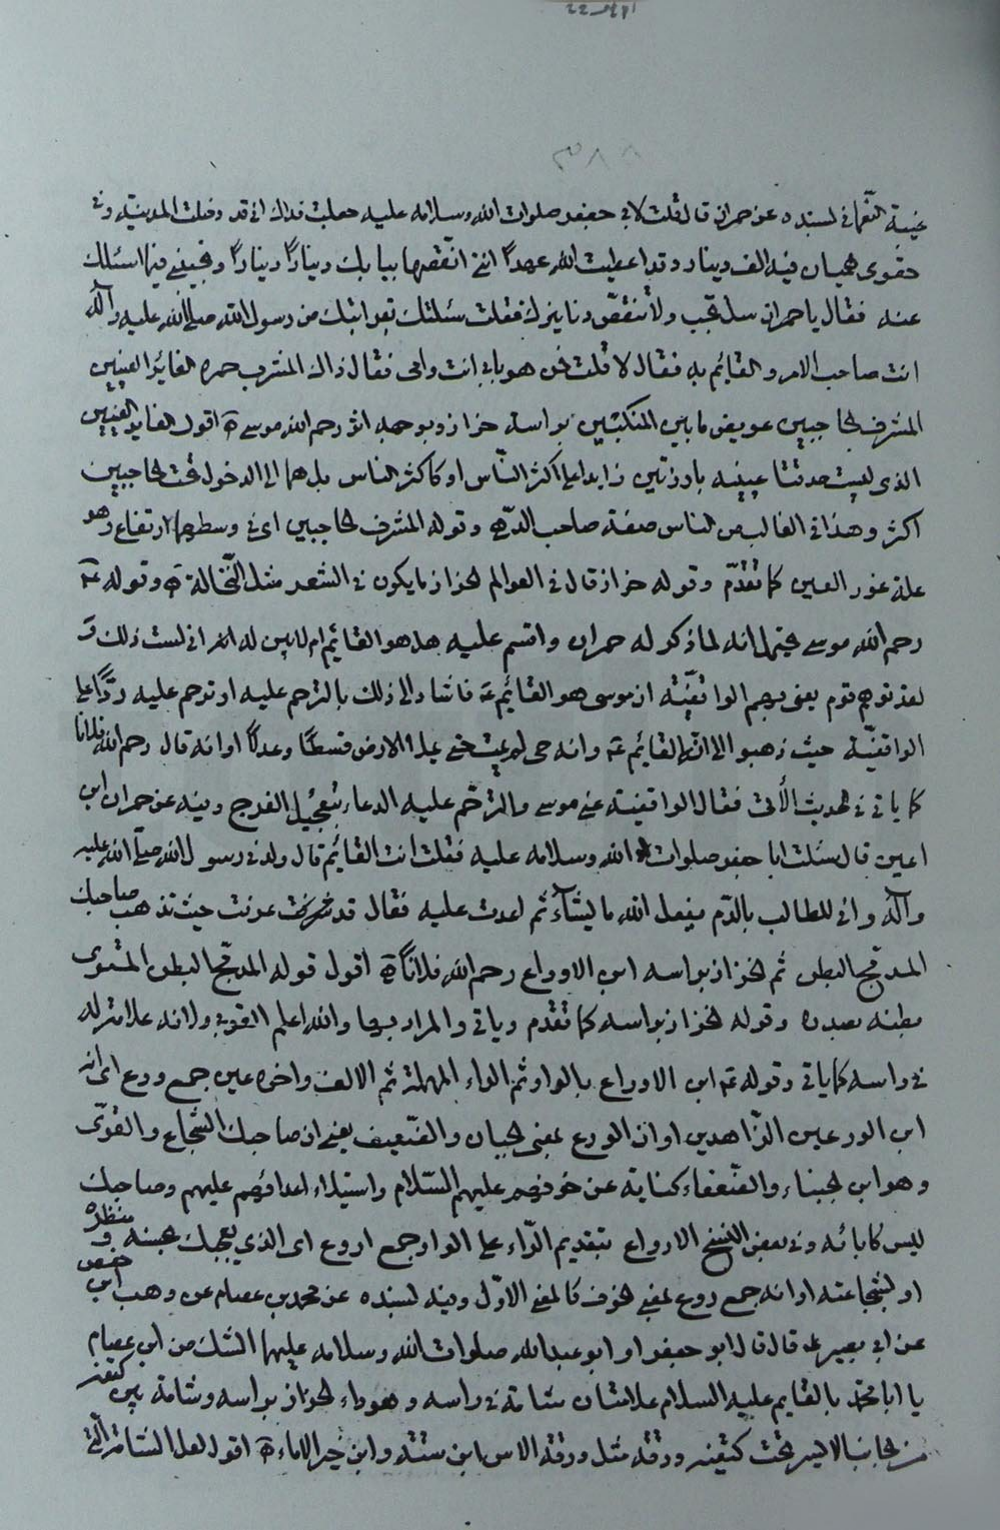 غيبة النعماني بسنده عن حمران قال قلت لابي جعفر صلوات الله وسلامه عليه جعلت فداك اني قد دخلت المدينة وفي
حقوى هميان فيه الف دينار وقد اعطيت الله عهدًا انني انفقها ببابك دينارًا دينارًا او تجيبني فيما اسئلك
عنه فقال يا حمران سل تجب ولا تنفقن دنانيرك فقلت سئلتك بقرابتك من رسول الله صلى الله عليه وآله
انت صاحب الامر والقايم به فقال لا قلت فمن هو بابي انت وامي فقال ذاك المشرب حمره الغاير العينين
المشرف الحاجبين عريض ما بين المنكبين براسه حزاز وبوجهه اثر رحم الله موسى ه اقول الغاير العينين
الذي ليست حدقتا عينيه بارزتين زايدا على اكثر الناس او كاكثر الناس بل هما الى الدخول تحت الحاجبين
اكثر وهذا في الغالب من الناس صفة صاحب وقوله المشرف الحاجبين اي في وسطهما ارتفاع وهو
علة غور العين كما تقدّم وقوله حزاز قال في العوالم الحزاز ما يكون في الشعر مثل النخالة ه وقوله ع
رحم الله موسى يحتمل انه لما ذكر له حمران واقسم عليه هل هو القايم ام لا بين له انى لست ذلك و
لقد توهم قوم يعني بهم الواقفيّة ان موسى هو القايم ع فاشار الى ذلك بالترحم عليه او ترحم عليه ردًّا على
الواقفيّة حيث ذهبوا الى انه القايم ع وانه حي لم يمت حتى يملا الارض قسطًا وعدلًا او انه قال رحم الله فلانا
كما ياتي في الحديث الآتي فقال الواقفية عنى موسى والترحّم عليه الدعاء بتعجيل الفرج وفيه عن حمران ابن
اعين قال سئلت ابا جعفر صلوات الله وسلامه عليه فقلت انت القايم قال ولدني رسول الله صلى الله عليه
وآله واني للطالب بالدّم ويفعل الله ما يشآء ثم اعدت عليه فقال قد عرفت حيث تذهب صاحبك
المدبّح البطن ثم الحزاز براسه ابن الاوراع رحم الله فلانًا ه اقول قوله المدبّح البطن المستوى
بطنه بصدره وقوله الحزاز براسه كما تقدم وياتي والمراد بها والله اعلم ولانه علامة له
في راسه كما ياتي وقوله ع ابن الاوراع بالواو ثم الراء المهملة ثم الالف واخره عين جمع ورع اي انه
ابن الورعين الزاهدين او ان الورع بمعنى الجبان والضعيف يعني ان صاحبك الشجاع والقوّى
وهو ابن الجبناء والضعفاء كناية عن خوفهم عليهم السّلام واستيلاء اعدائهم عليهم وصاحبك
ليس كابائه وفي بعض النسخ الارواع بتقديم الرّاء على الواو جمع اروع اي الذي يعجبك بحسنه و منظره
او لشجاعته او انه جمع روع بمعنى الخوف كالمعنى الاوّل وفيه بسنده عن محمد بن عصام عن وهب ابن حفص
عن ابي بصير قال قال ابو جعفر او ابو عبد الله صلوات الله وسلامه عليهما الشك من ابن عصام
يا ابا محمّد بالقايم عليه السلام علامتان شامة في راسه وهو داء الحزاز براسه وشامة بين كتفيه
من جانبه الايسر تحت كتفيه ورقة مثل ورقة الاس ابن ستة وابن خير الاماء ه اقول لعل الشامة التي